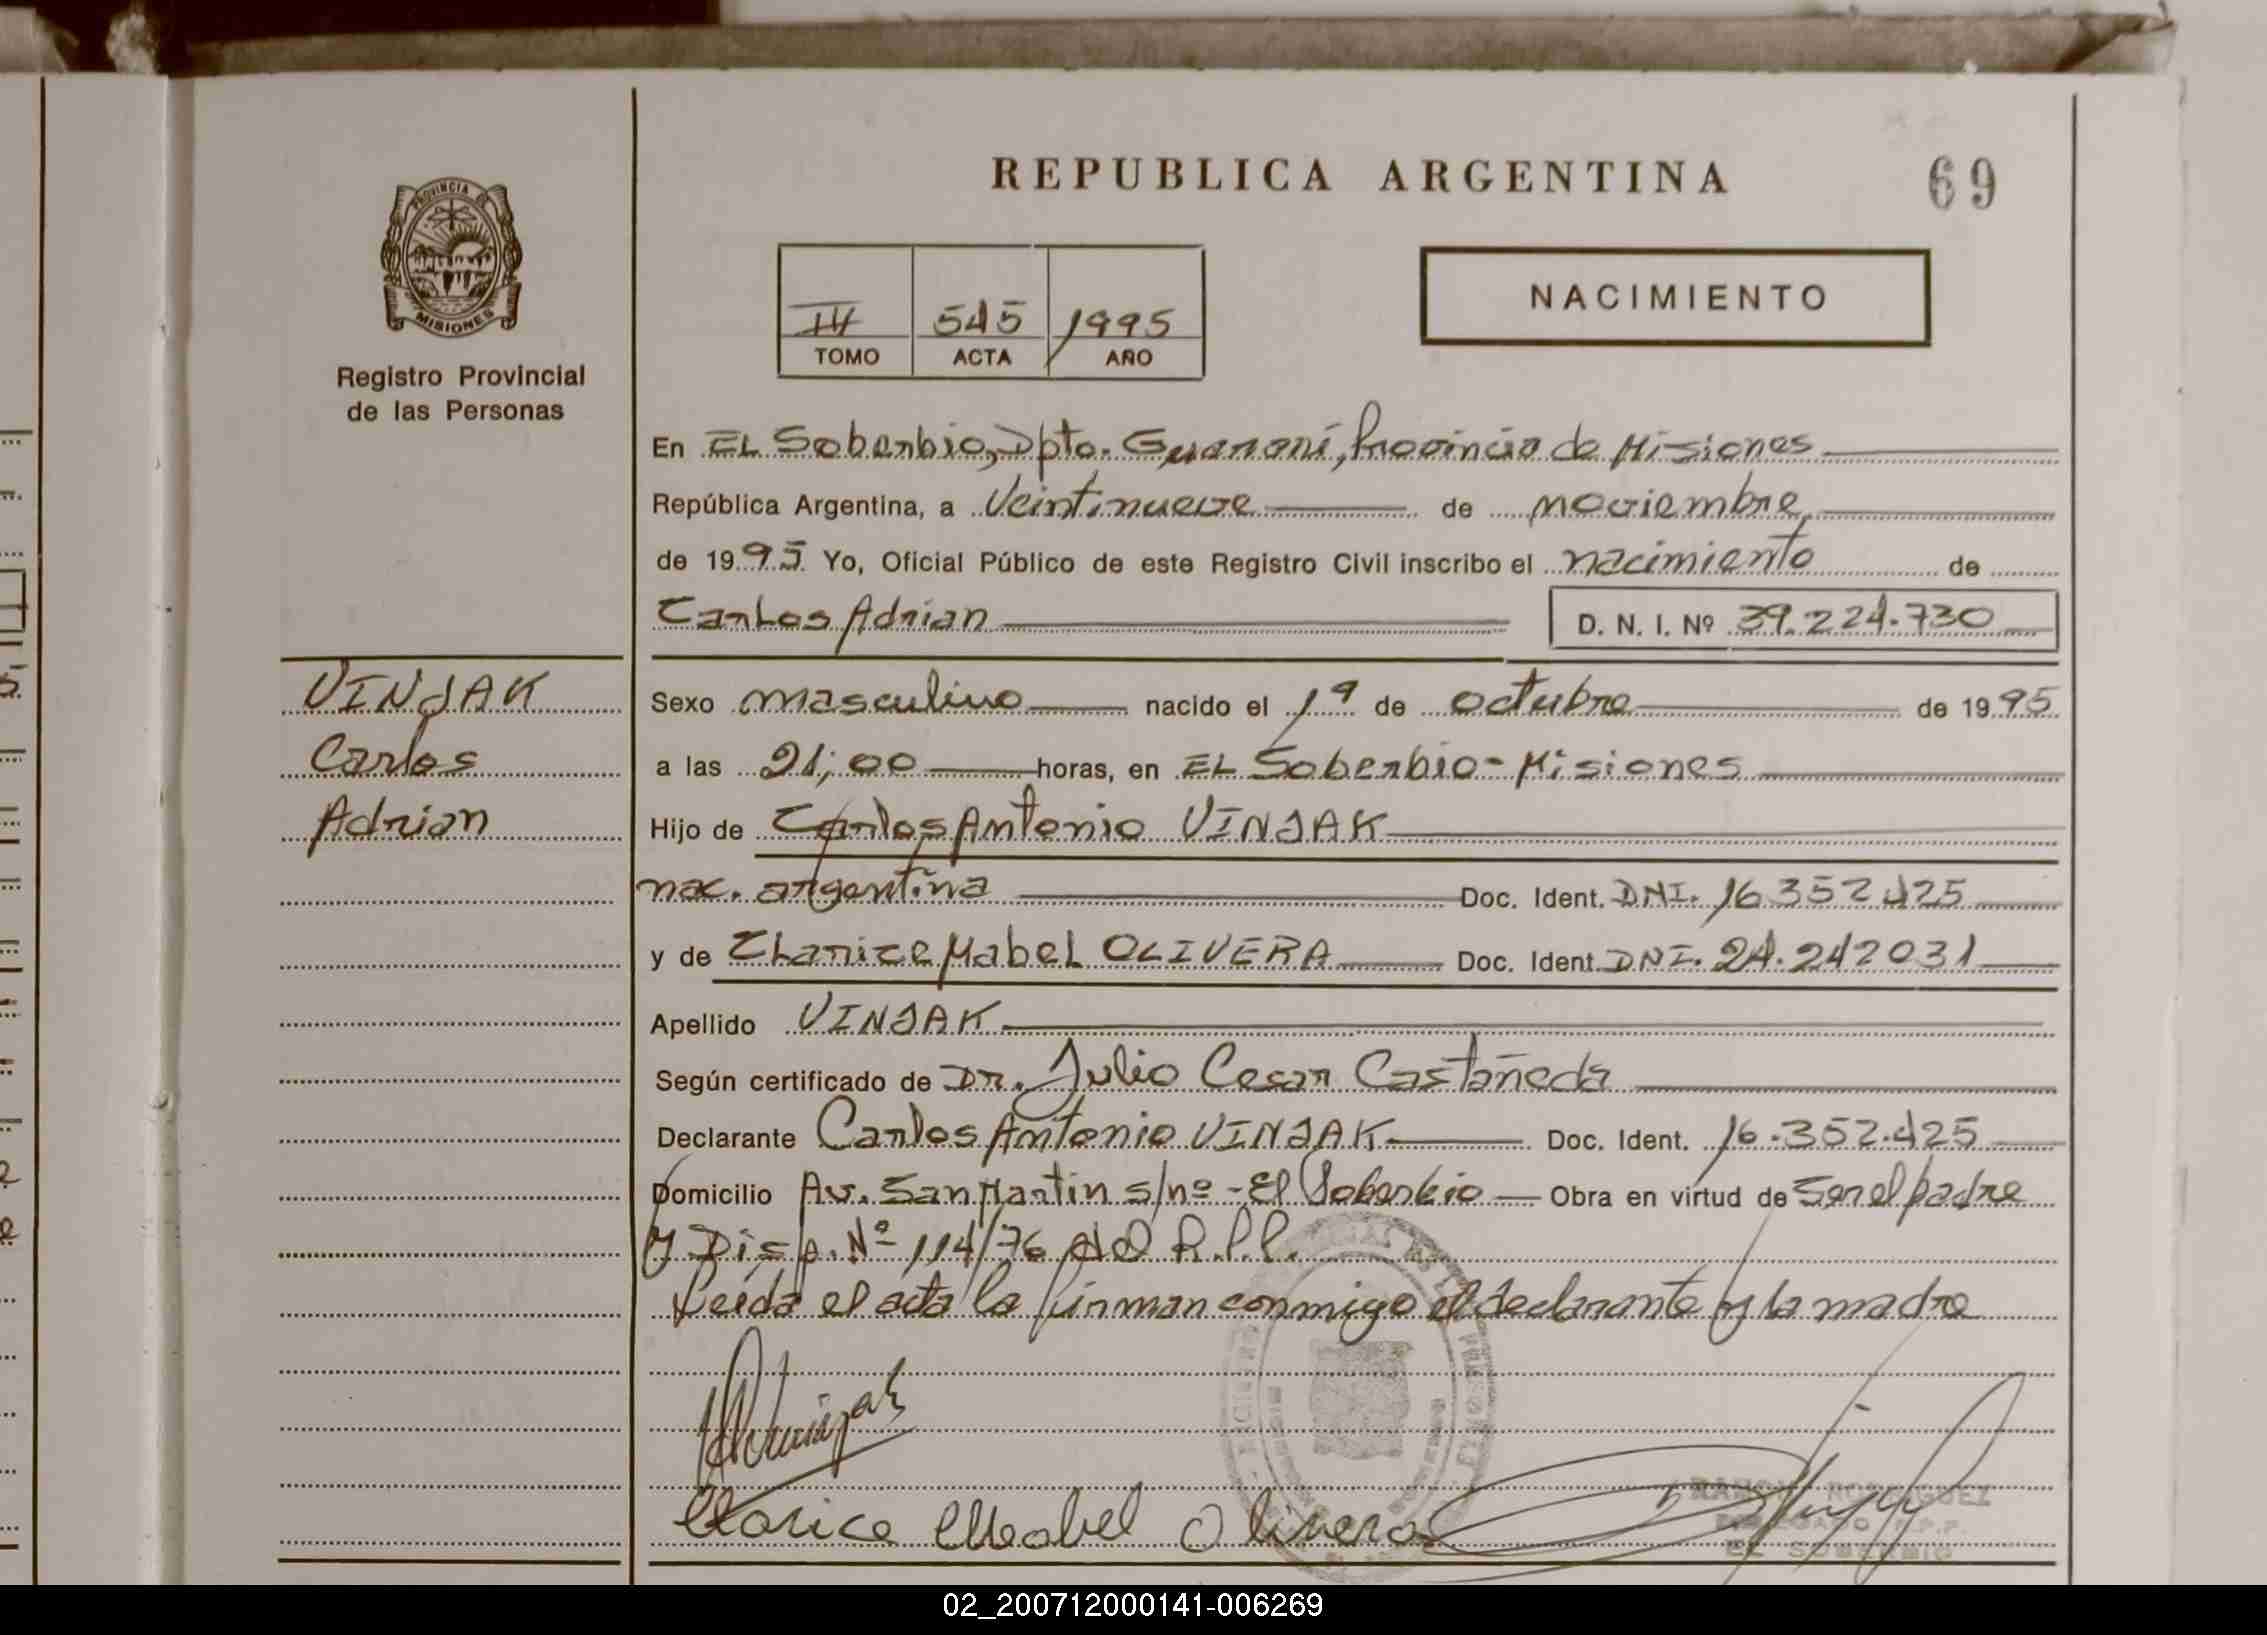 REPUBLICA ARGENTINA
69
PROVINCIA DE
MISIONES
Registro Provincial
de las Personas
III 545 1995
TOMO ACTA AÑO
NACIMIENTO
En EL Soberbio, Dpto. Guaraní, Provincia de Misiones
República Argentina, a Veintinueve de noviembre
de 1995 Yo, Oficial Público de este Registro Civil inscribo el nacimiento de
Carlos Adrian
D. N. I. Nº 39.224.730
VINJAK
Carlos
Adrian
Sexo masculino nacido el 1º de octubre de 1995
a las 21;00 horas, en EL Soberbio - Misiones
Hijo de Carlos Antonio VINJAK
nac. argentina Doc. Ident. DNI. 16.352.425
y de Clarice Mabel OLIVERA Doc. Ident. DNI. 24.242031
Apellido VINJAK
Según certificado de Dr. Julio Cesar Castañeda
Declarante Carlos Antonio VINJAK Doc. Ident. 16.352.425
Domicilio Av. San Martin s/nº - El Soberbio Obra en virtud de Ser el padre
y Disp. Nº 114/76 del R.P.P.
Leída el acta la firman conmigo el declarante y la madre
Clarice Mabel Olivera
RAMON RODRIGUEZ
DELEGADO R.P.P.
EL SOBERBIO
02_200712000141-006269